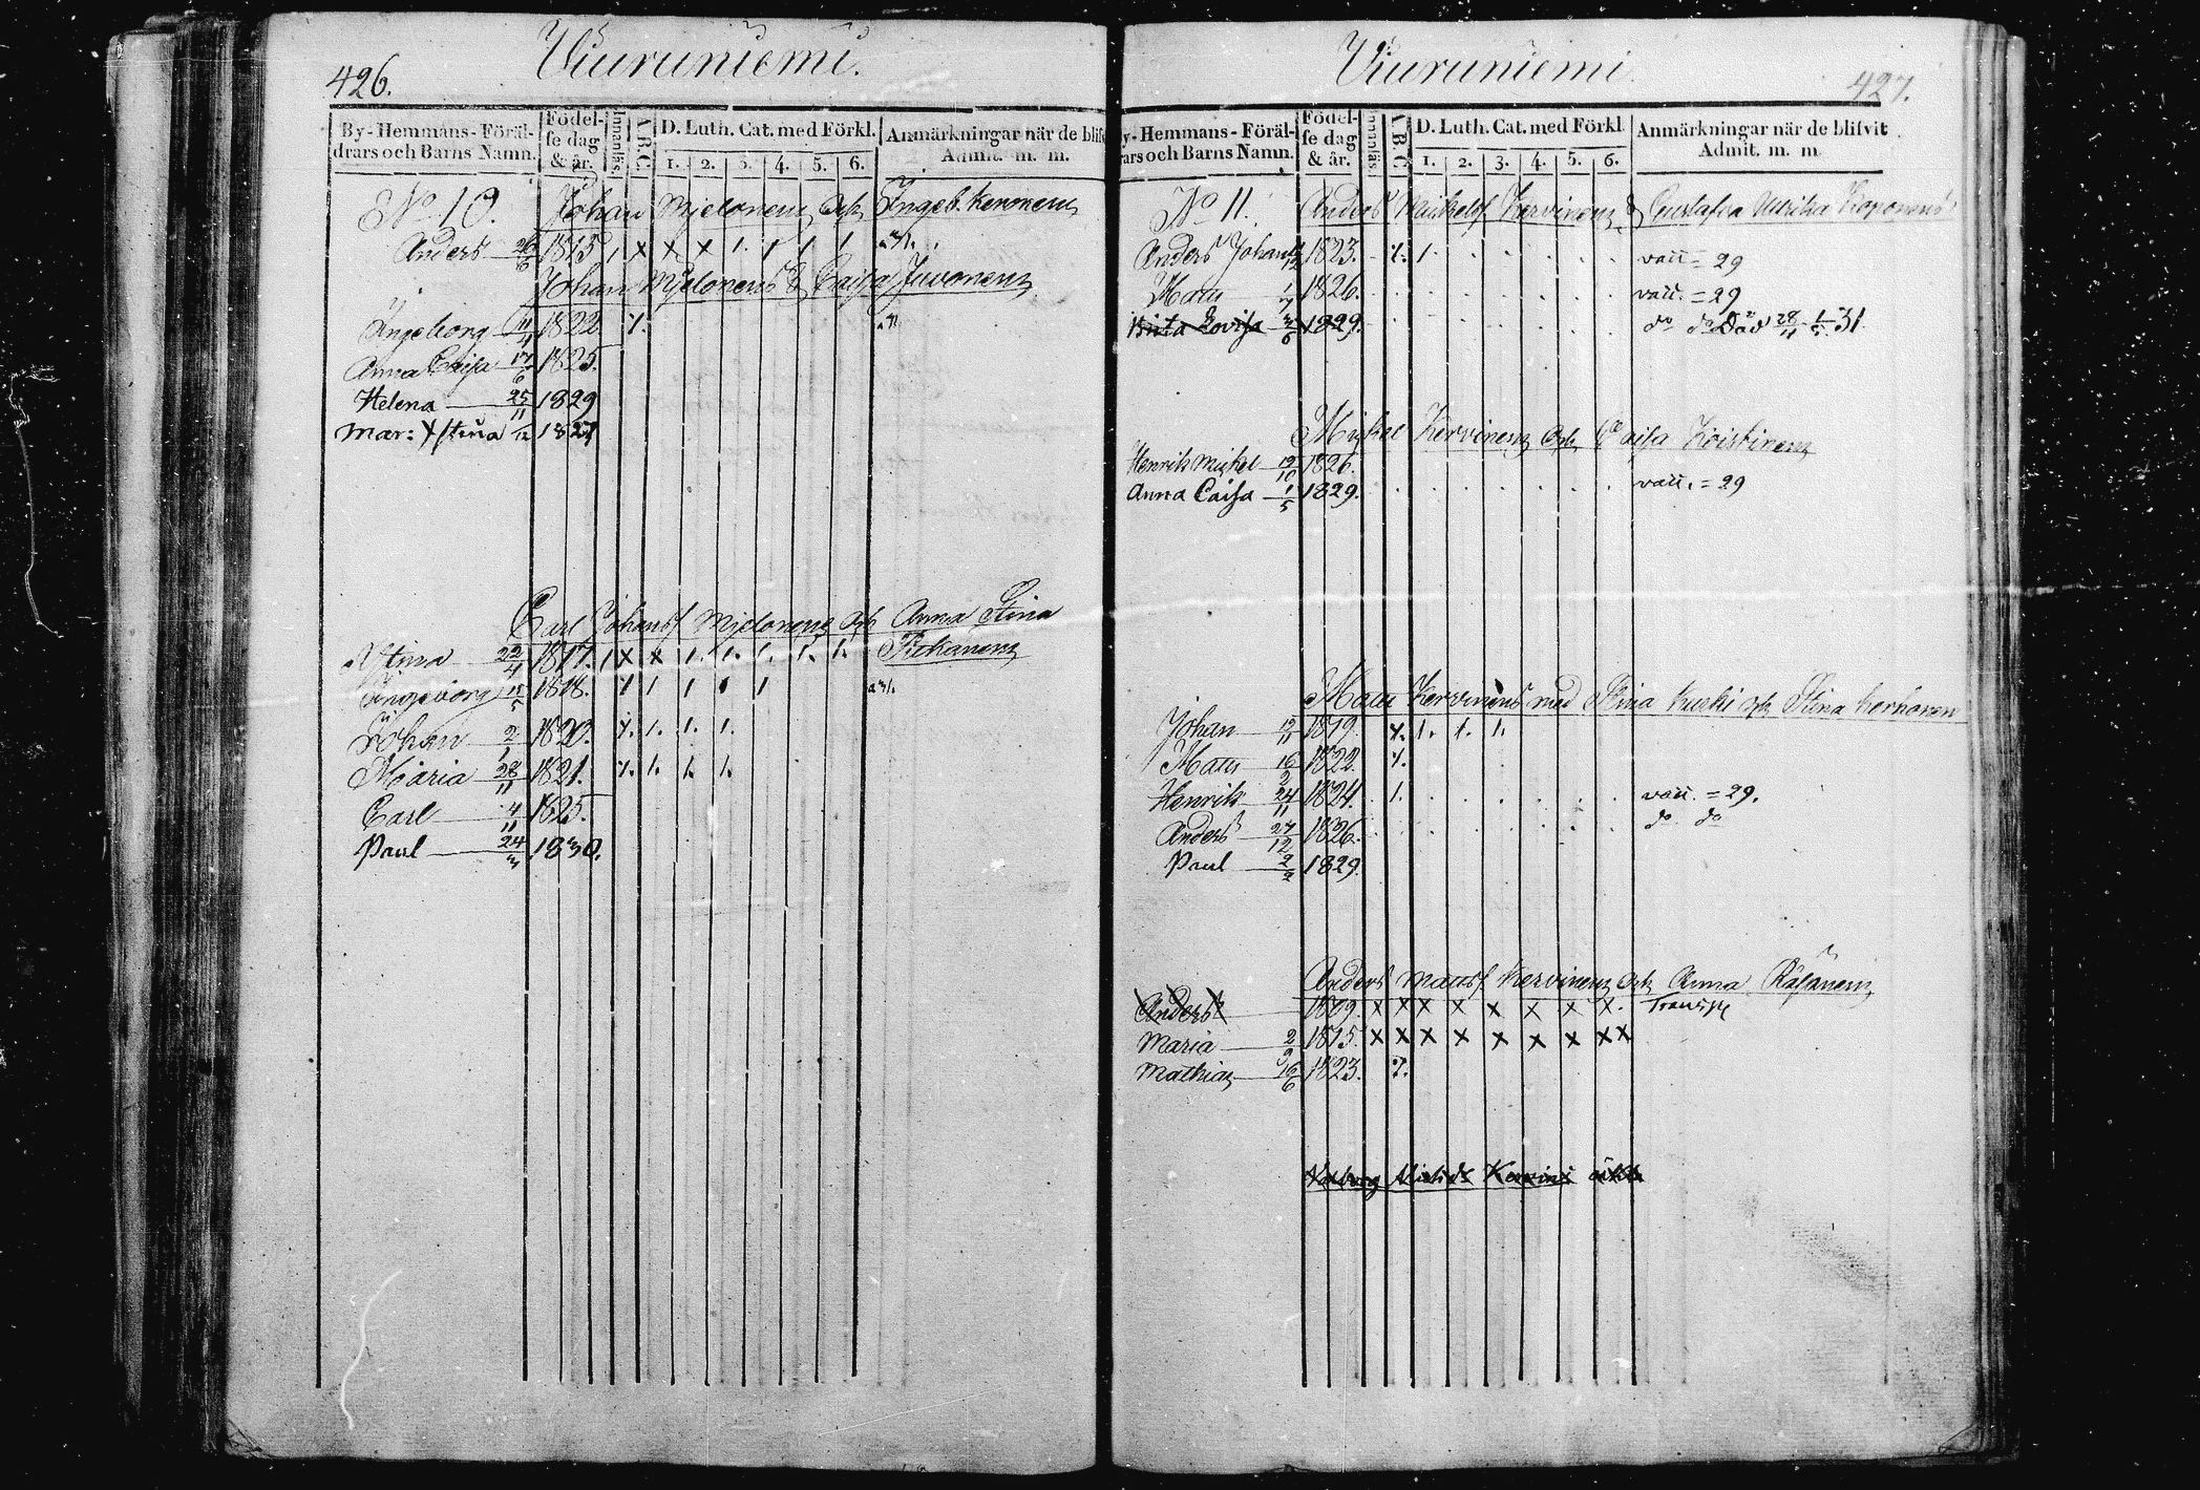 426.
Viuruniemi.
By-Hemmans-Föräl-
drars och Barns Namn.
Födel-
se dag
& år.
Innanläs
A.B.C.
D. Luth. Cat. med Förkl.
1. 2. 3. 4. 5. 6.
Anmärkningar när de blifv
Admit. m. m.
No 10. Johan Mjelonen och Ingeb. Keronen
Anders 26/6 1815 1 x x x 1. 1 1 1
Johan Mjelonens & Caisa Juvonen
Ingeborg 11/4 1822 1.
Anna Caisa 17/6 1825.
Helena 25/11 1829
Mar: Xstina 1827
Carl Johansf Mjelonens och Anna Stina
Pitkänen
Stina 22/4 1817. 1 x x 1. 1. 1. 1. 1.
Ingeborg 11/5 1818. 1 1 1 1 1
Johan 2/1 1820. 1. 1. 1. 1.
Maria 28/11 1821. 1. 1. 1. 1.
Carl 4/11 1825.
Paul 24/3 1830.
Viuruniemi
427.
y-Hemmans-Föräl-
rars och Barns Namn.
Födel-
se dag
& år.
nnanläs
A.B.C.
D. Luth. Cat. med Förkl.
1. 2. 3. 4. 5. 6.
Anmärkningar när de blifvit
Admit. m. m.
No 11. Anders Mickelsf Kervinen & Gustafva Ulrika Koponens
Anders Johan 1823. 1. 1. vacc = 29
Matts 1/7 1826. vacc. = 29
Brita Lovisa 3/6 1829. do do Död 28/4 1/5 31.
Mickel Kervinen och Caisa Koistinen
Henrik Mickel 19/10 1826.
Anna Caisa 1/5 1829. vacc. = 29
Matts Kervinens med Stina Kuski och Stina Kerkonen
Johan 12/11 1819. 1. 1. 1. 1.
Matts 16/2 1822. 1.
Henrik 24/11 1824. 1. vacc. = 29.
Anders 27/12 1826. do do
Paul 2/2 1829.
Anders Mattsf. Kervinen och Anna Räsänen
Anders 1809. x x x x x x x x. Transp
Maria 2/9 1815. x x x x x x x x x
Mathias 16/6 1823. 1.